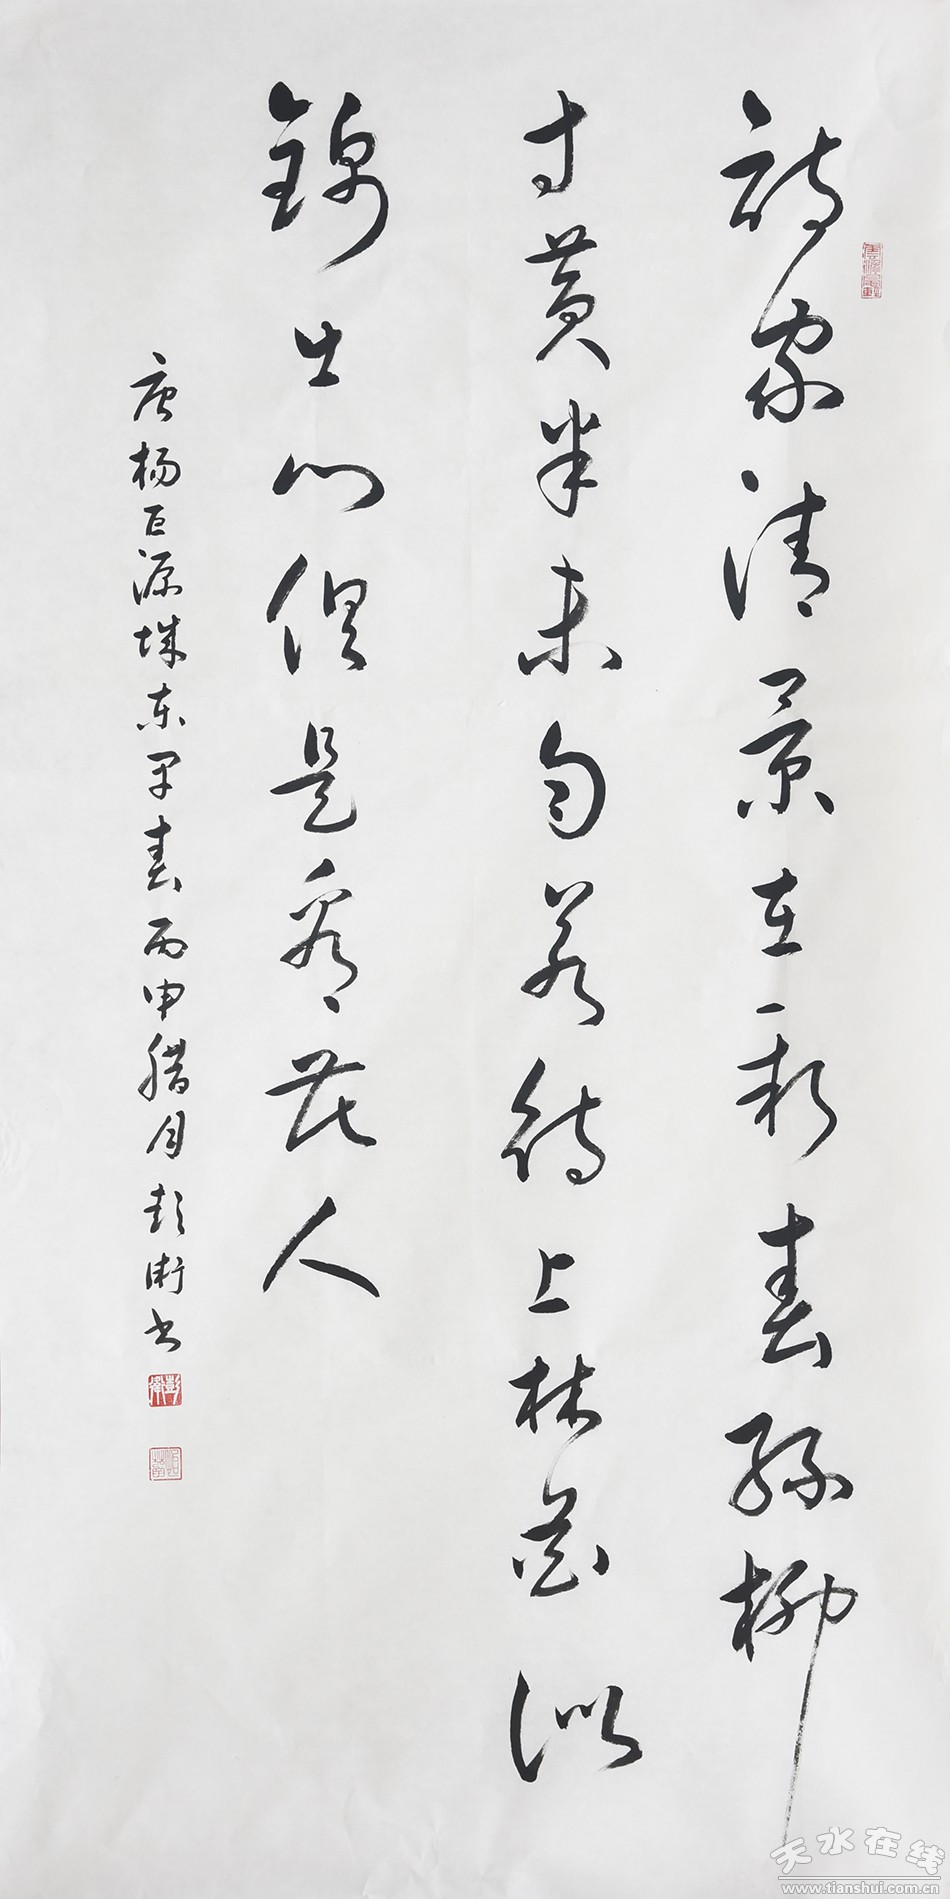 詩家清景在新春綠柳
才黄半未匀若待上林花似
錦出门俱是看花人
唐杨巨源城东早春丙申腊月彭衛书
彭衛
天水在线
www.tianshui.com.cn